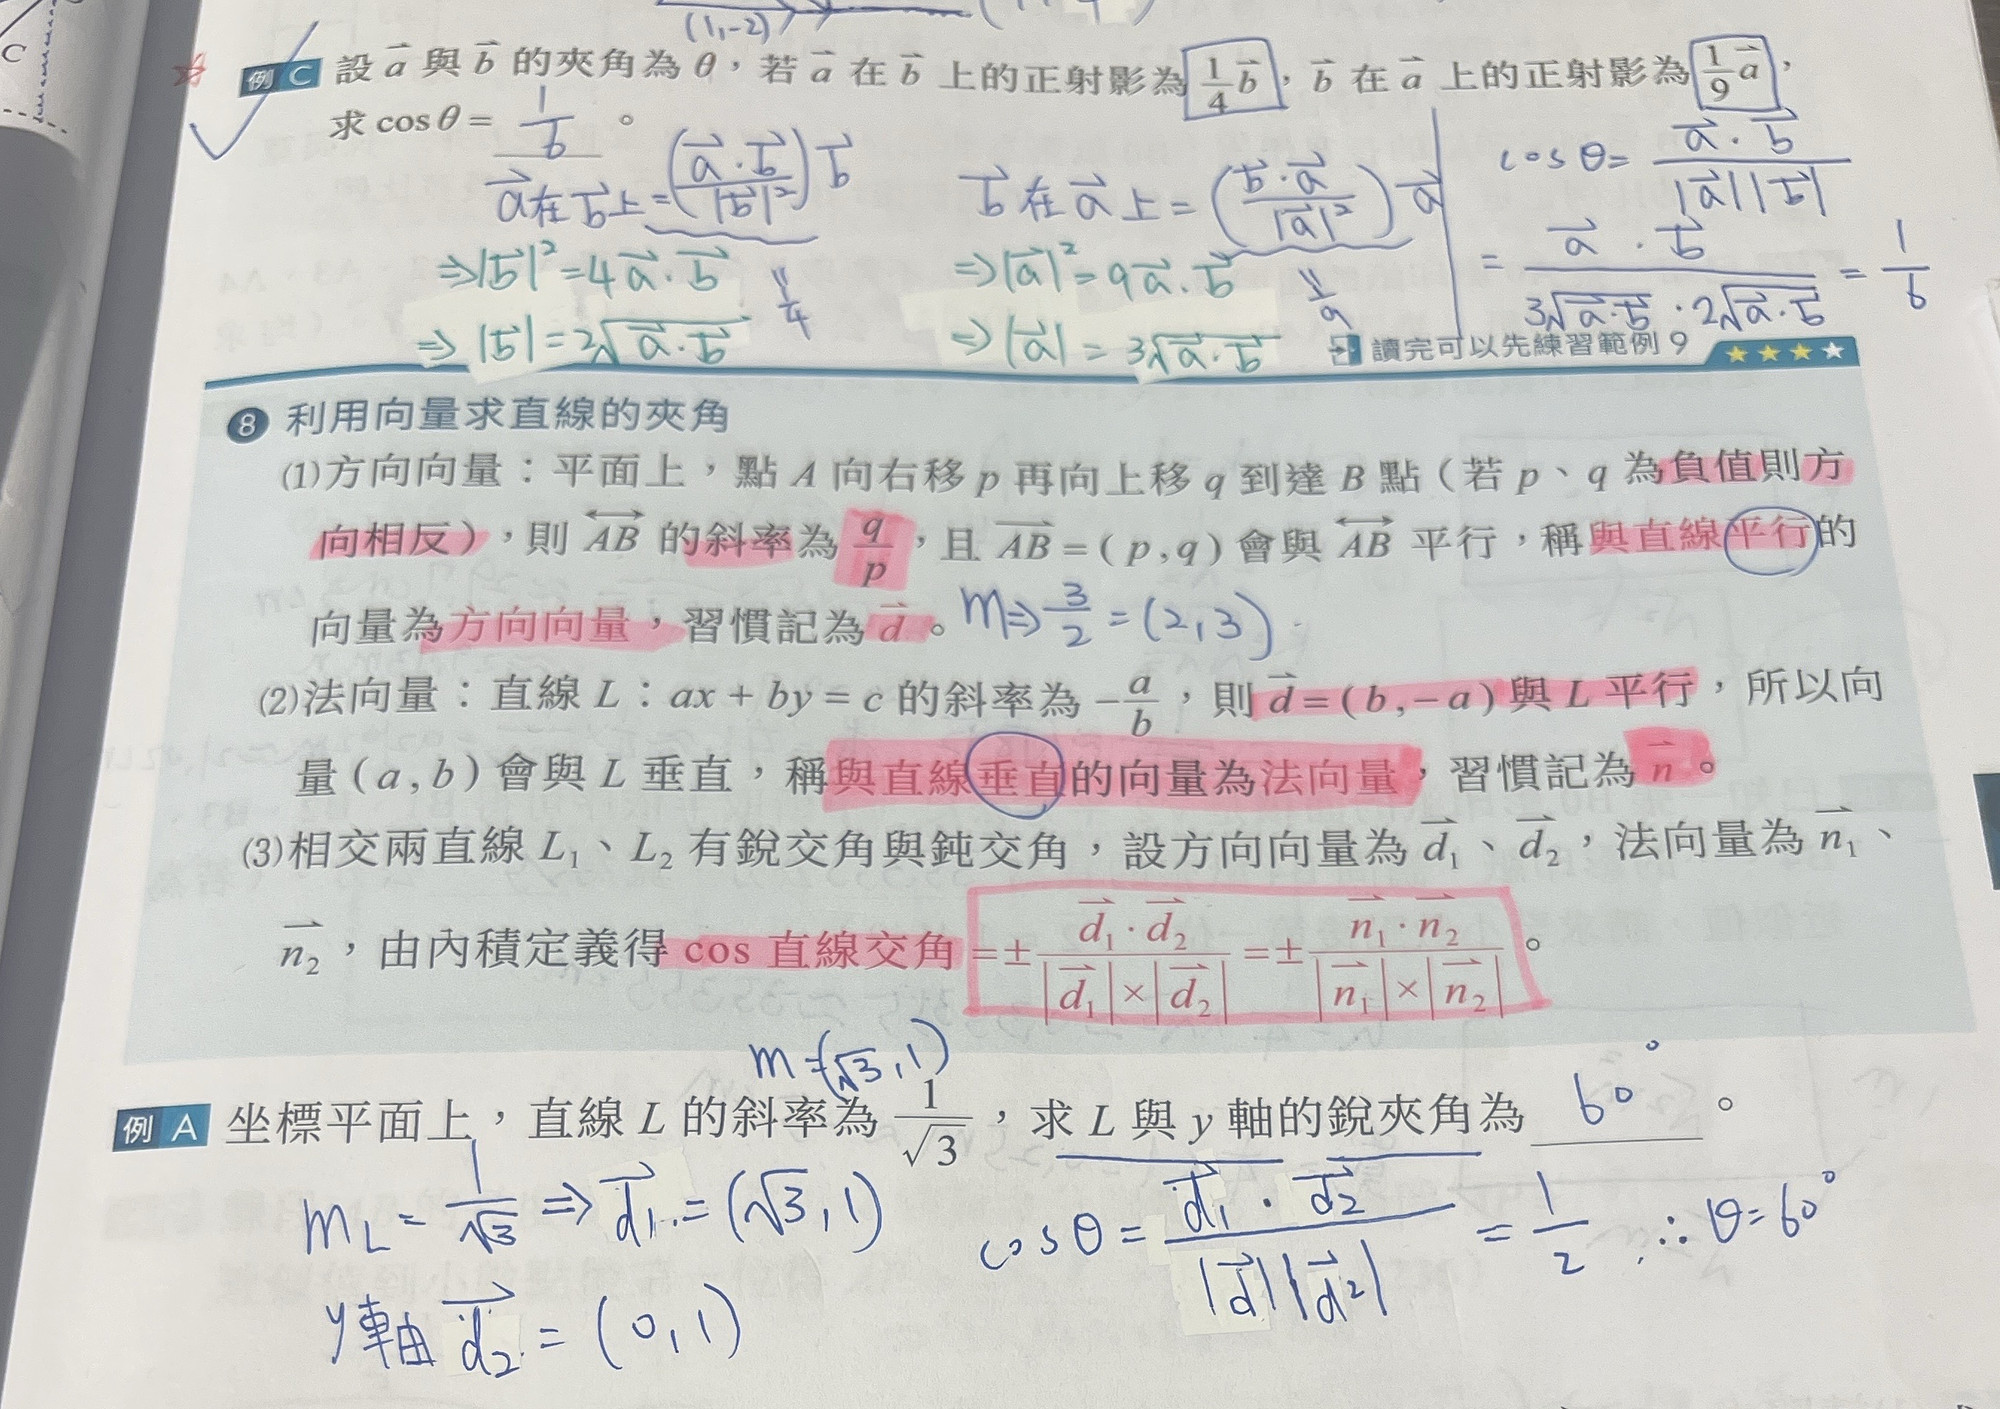 (1,-2)
例 C 設 a 與 b 的夾角為 θ，若 a 在 b 上的正射影為 1/4 b，b 在 a 上的正射影為 1/9 a，
求 cosθ = 1/6 。
a在b上=(a·b/|b|²)b
⇒|b|²=4a·b
⇒|b|=2√a·b
=1/4
b在a上=(b·a/|a|²)a
⇒|a|²=9a·b
⇒|a|=3√a·b
=1/9
cosθ= a·b/|a||b|
= a·b/3√a·b·2√a·b = 1/6
讀完可以先練習範例 9 ★★★★
8 利用向量求直線的夾角
(1)方向向量：平面上，點 A 向右移 p 再向上移 q 到達 B 點（若 p、q 為負值則方
向相反），則 AB 的斜率為 q/p，且 AB =( p , q ) 會與 AB 平行，稱與直線平行的
向量為方向向量，習慣記為 d 。 m⇒3/2=(2,3)
(2)法向量：直線 L：ax + by = c 的斜率為 −a/b，則 d = ( b , − a ) 與 L 平行，所以向
量 ( a , b ) 會與 L 垂直，稱與直線垂直的向量為法向量，習慣記為 n 。
(3)相交兩直線 L₁、L₂ 有銳交角與鈍交角，設方向向量為 d₁、d₂，法向量為 n₁、
n₂，由內積定義得 cos 直線交角 =± d₁·d₂/|d₁|×|d₂| =± n₁·n₂/|n₁|×|n₂| 。
m=(√3,1)
例 A 坐標平面上，直線 L 的斜率為 1/√3，求 L 與 y 軸的銳夾角為 60° 。
mL=1/√3⇒d₁=(√3,1)
y軸d₂=(0,1)
cosθ= d₁·d₂/|d||d₂| = 1/2 ∴θ=60°